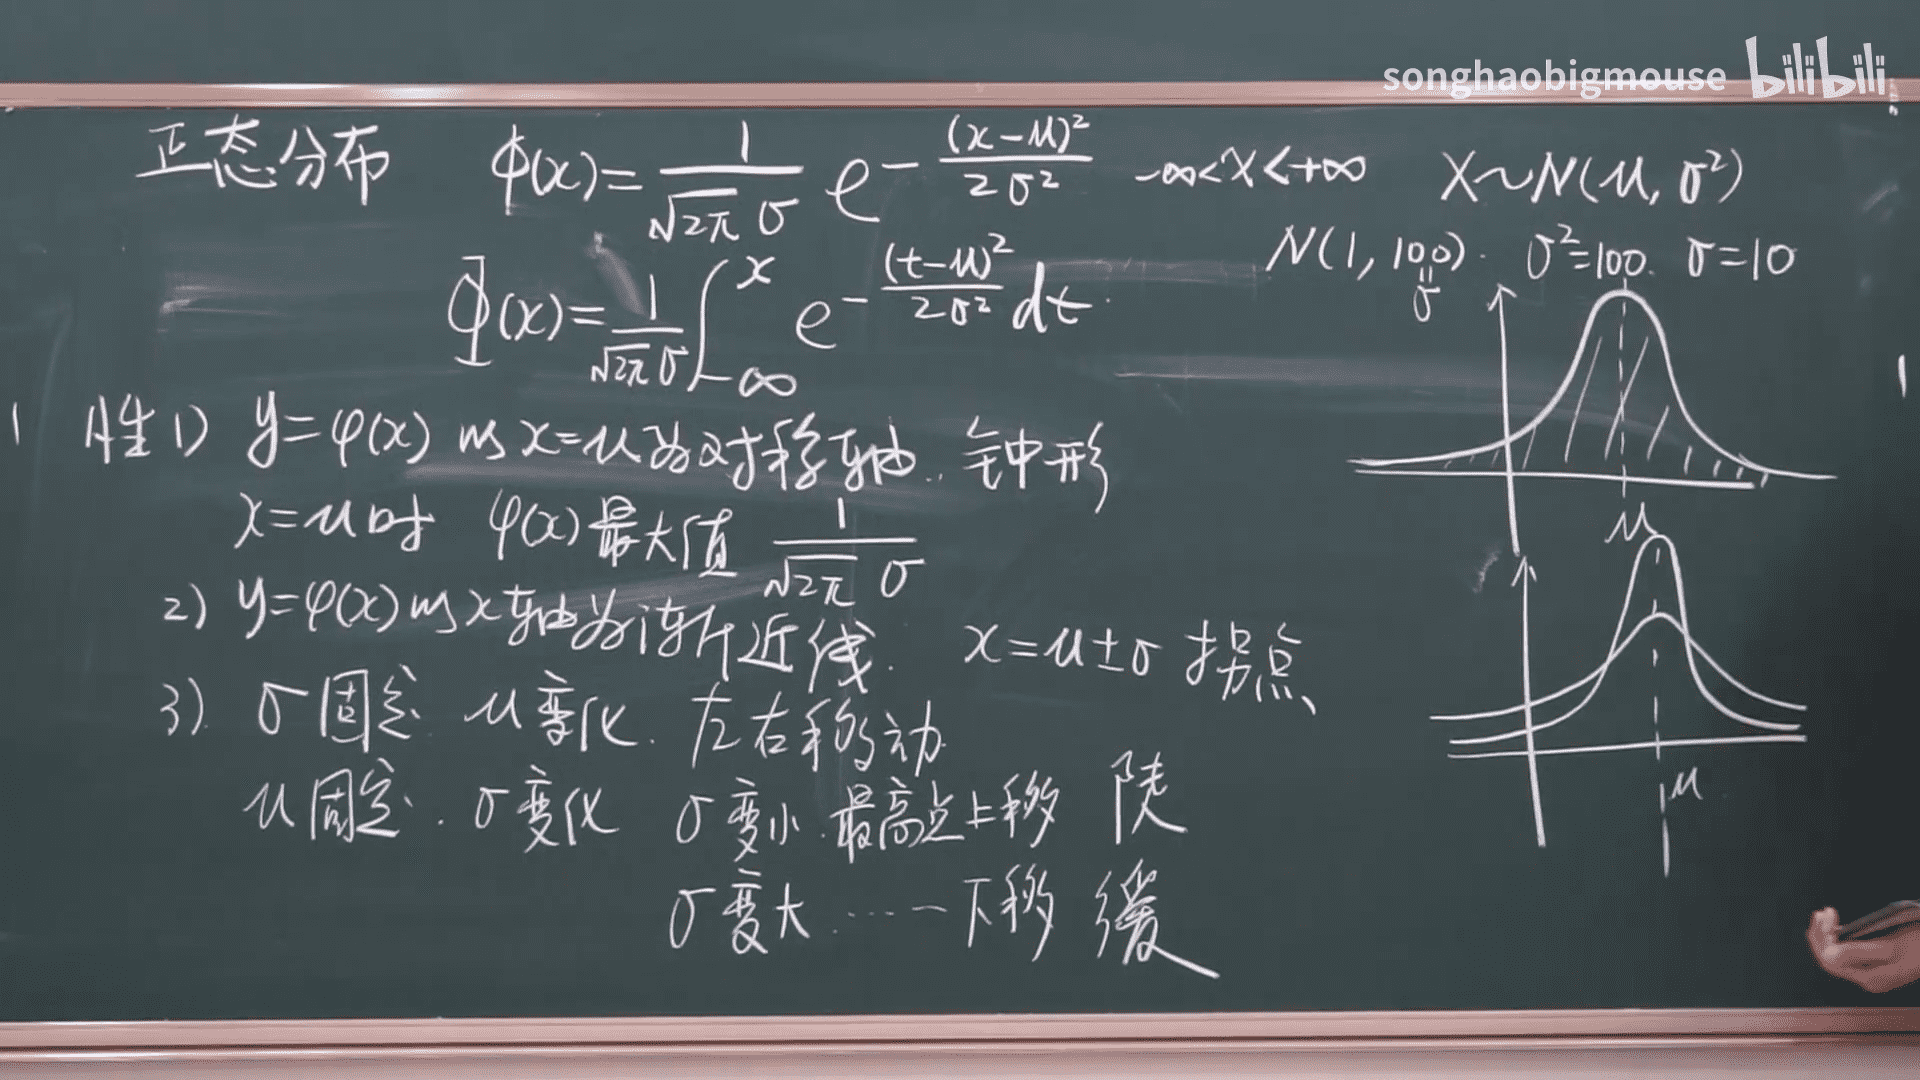 songhaobigmouse bilibili
正态分布 φ(x)=1/(√2π σ) e^-(x-μ)²/2σ² -∞<x<+∞ X~N(μ,σ²)
N(1,100). σ²=100. σ=10
σ
Φ(x)=1/(√2π σ)∫_{-∞}^{x} e^-(t-μ)²/2σ² dt.
性1) y=φ(x) 以x=μ为对称轴.. 钟形
x=μ时 φ(x)最大值 1/(√2π σ)
2) y=φ(x)以x轴为渐近线. x=μ±σ 拐点
3). σ固定 μ变化. 左右移动
μ固定. σ变化 σ变小.最高点上移 陡
σ变大……下移 缓
μ
μ